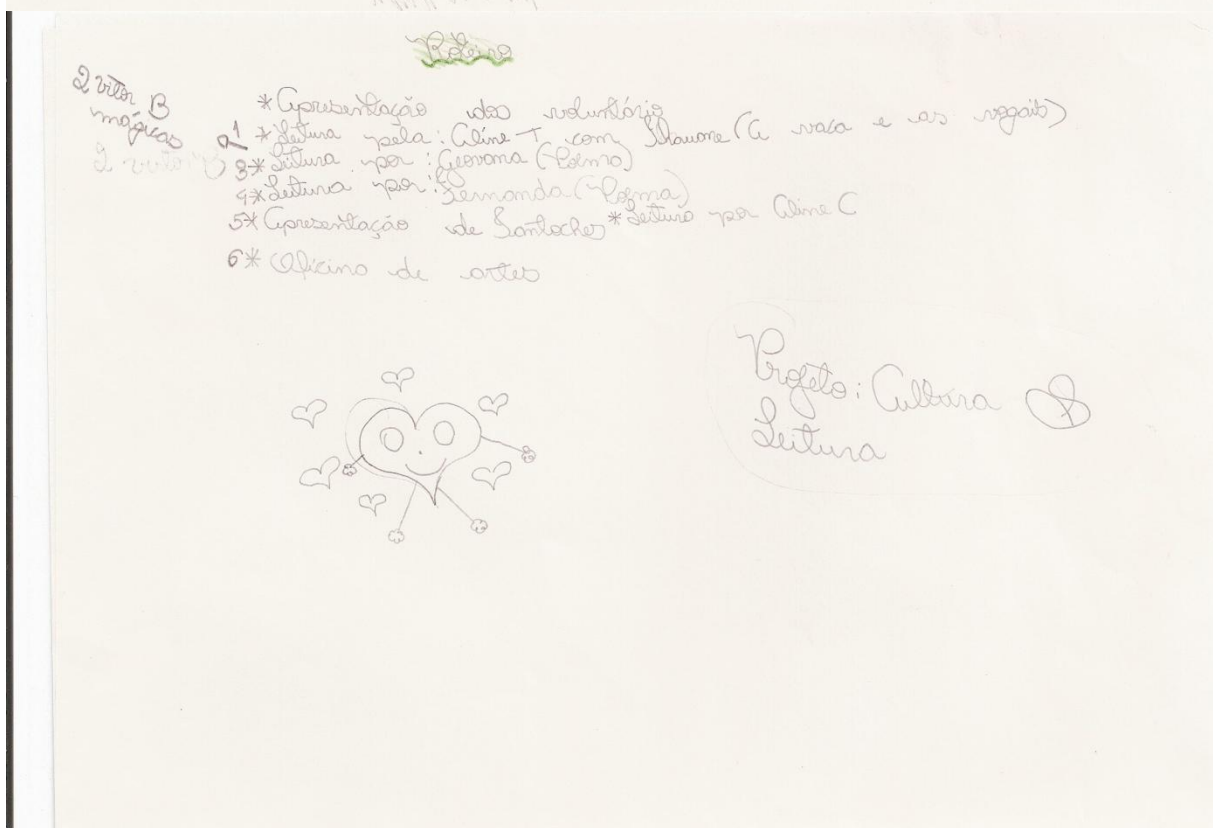 Roteiro
2 vitor B
mágicas
2 vitor B
* Apresentação dos voluntário
1 * Leitura pela: Aline T com (A vaca e as vogais)
3 * Leitura por: Geovana (Poema)
4 * Leitura por: Fernanda (Poema)
5 * Apresentação de Fantoches * Leitura por Aline C
6 * Oficina de artes
Projeto: Cultura &
Leitura